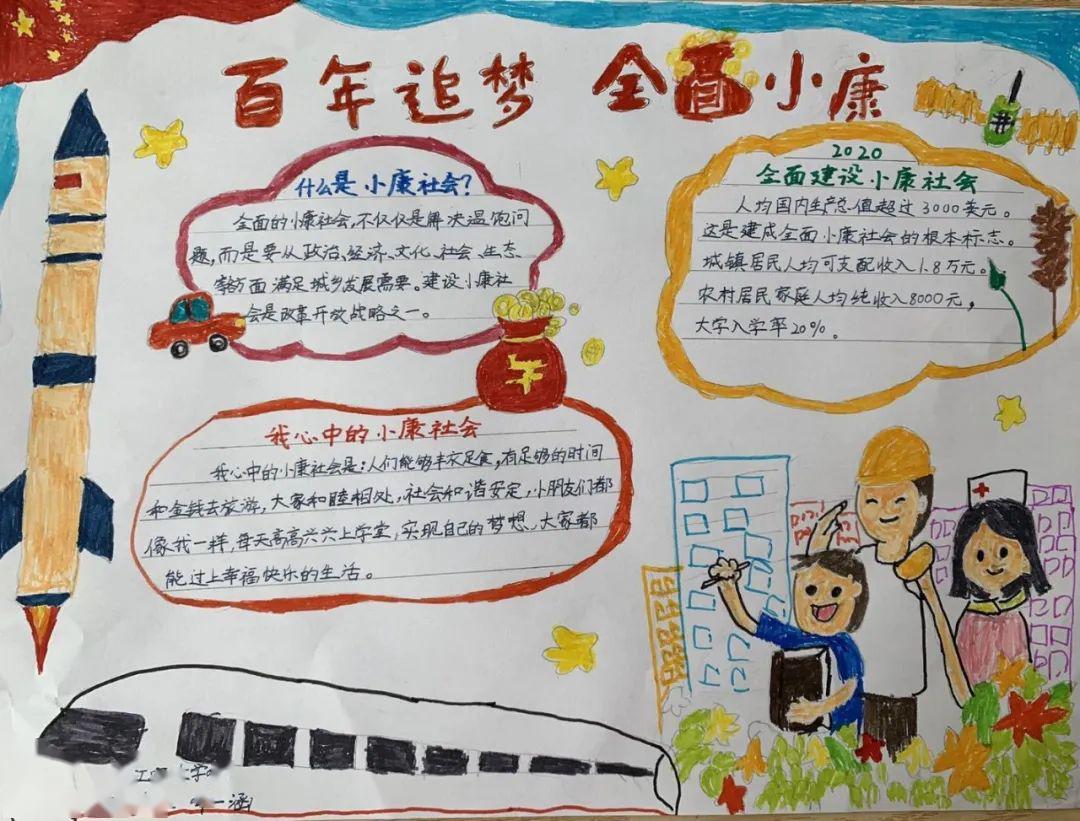 百年追梦 全面小康
什么是小康社会?
全面的小康社会,不仅仅是解决温饱问
题,而是要从政治、经济、文化、社会、生态
等方面满足城乡发展需要。建设小康社
会是改革开放战略之一。
2020
全面建设小康社会
人均国内生产总值超过3000美元。
这是建成全面小康社会的根本标志。
城镇居民人均可支配收入1.8万元。
农村居民家庭人均纯收入8000元,
大学入学率20%。
我心中的小康社会
我心中的小康社会是:人们能够丰衣足食,有足够的时间
和金钱去旅游,大家和睦相处,社会和谐安定,小朋友们都
像我一样,每天高高兴兴上学堂,实现自己的梦想,大家都
能过上幸福快乐的生活。
一涵